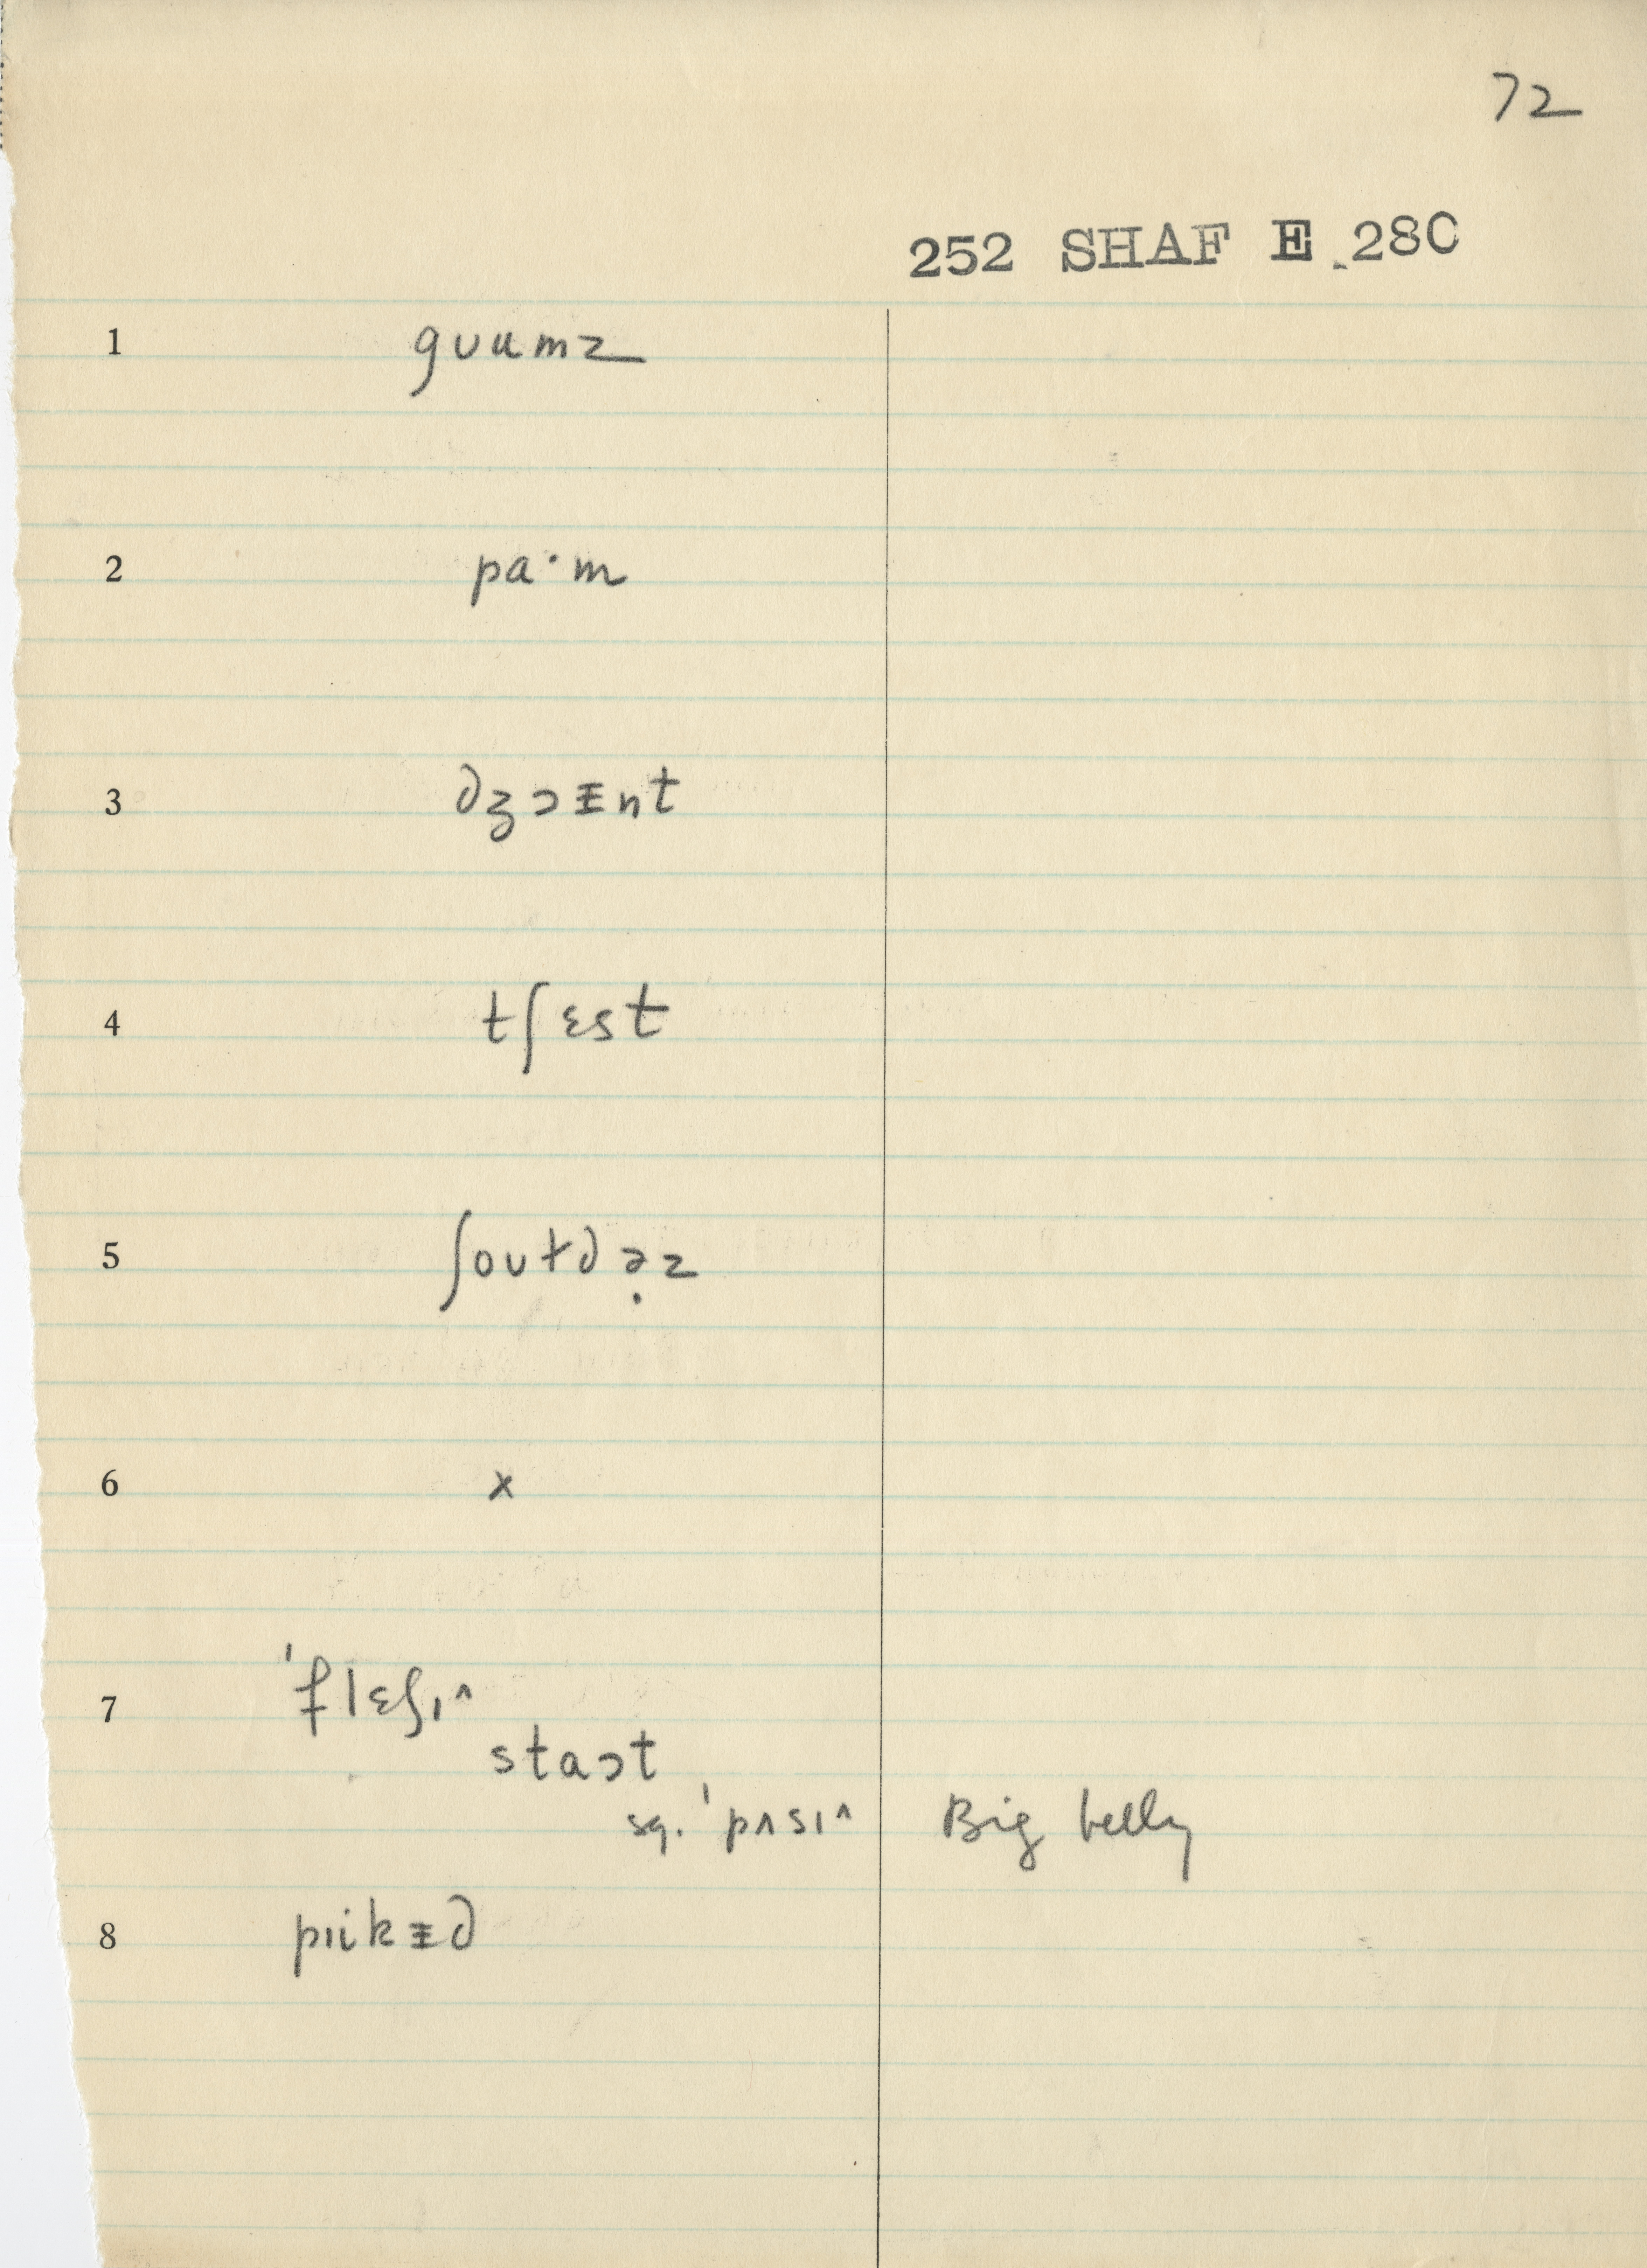 72
252 SHAF E 280
1 gʊumz
2 pa·m
3 dʒɔɪnt
4 tʃɛst
5 ʃoʊtdə̣z
6 x
7 'flɛʃɪ^
staɔt
sq. 'pʌsɪ^ Big belly
8 pɪikɪd